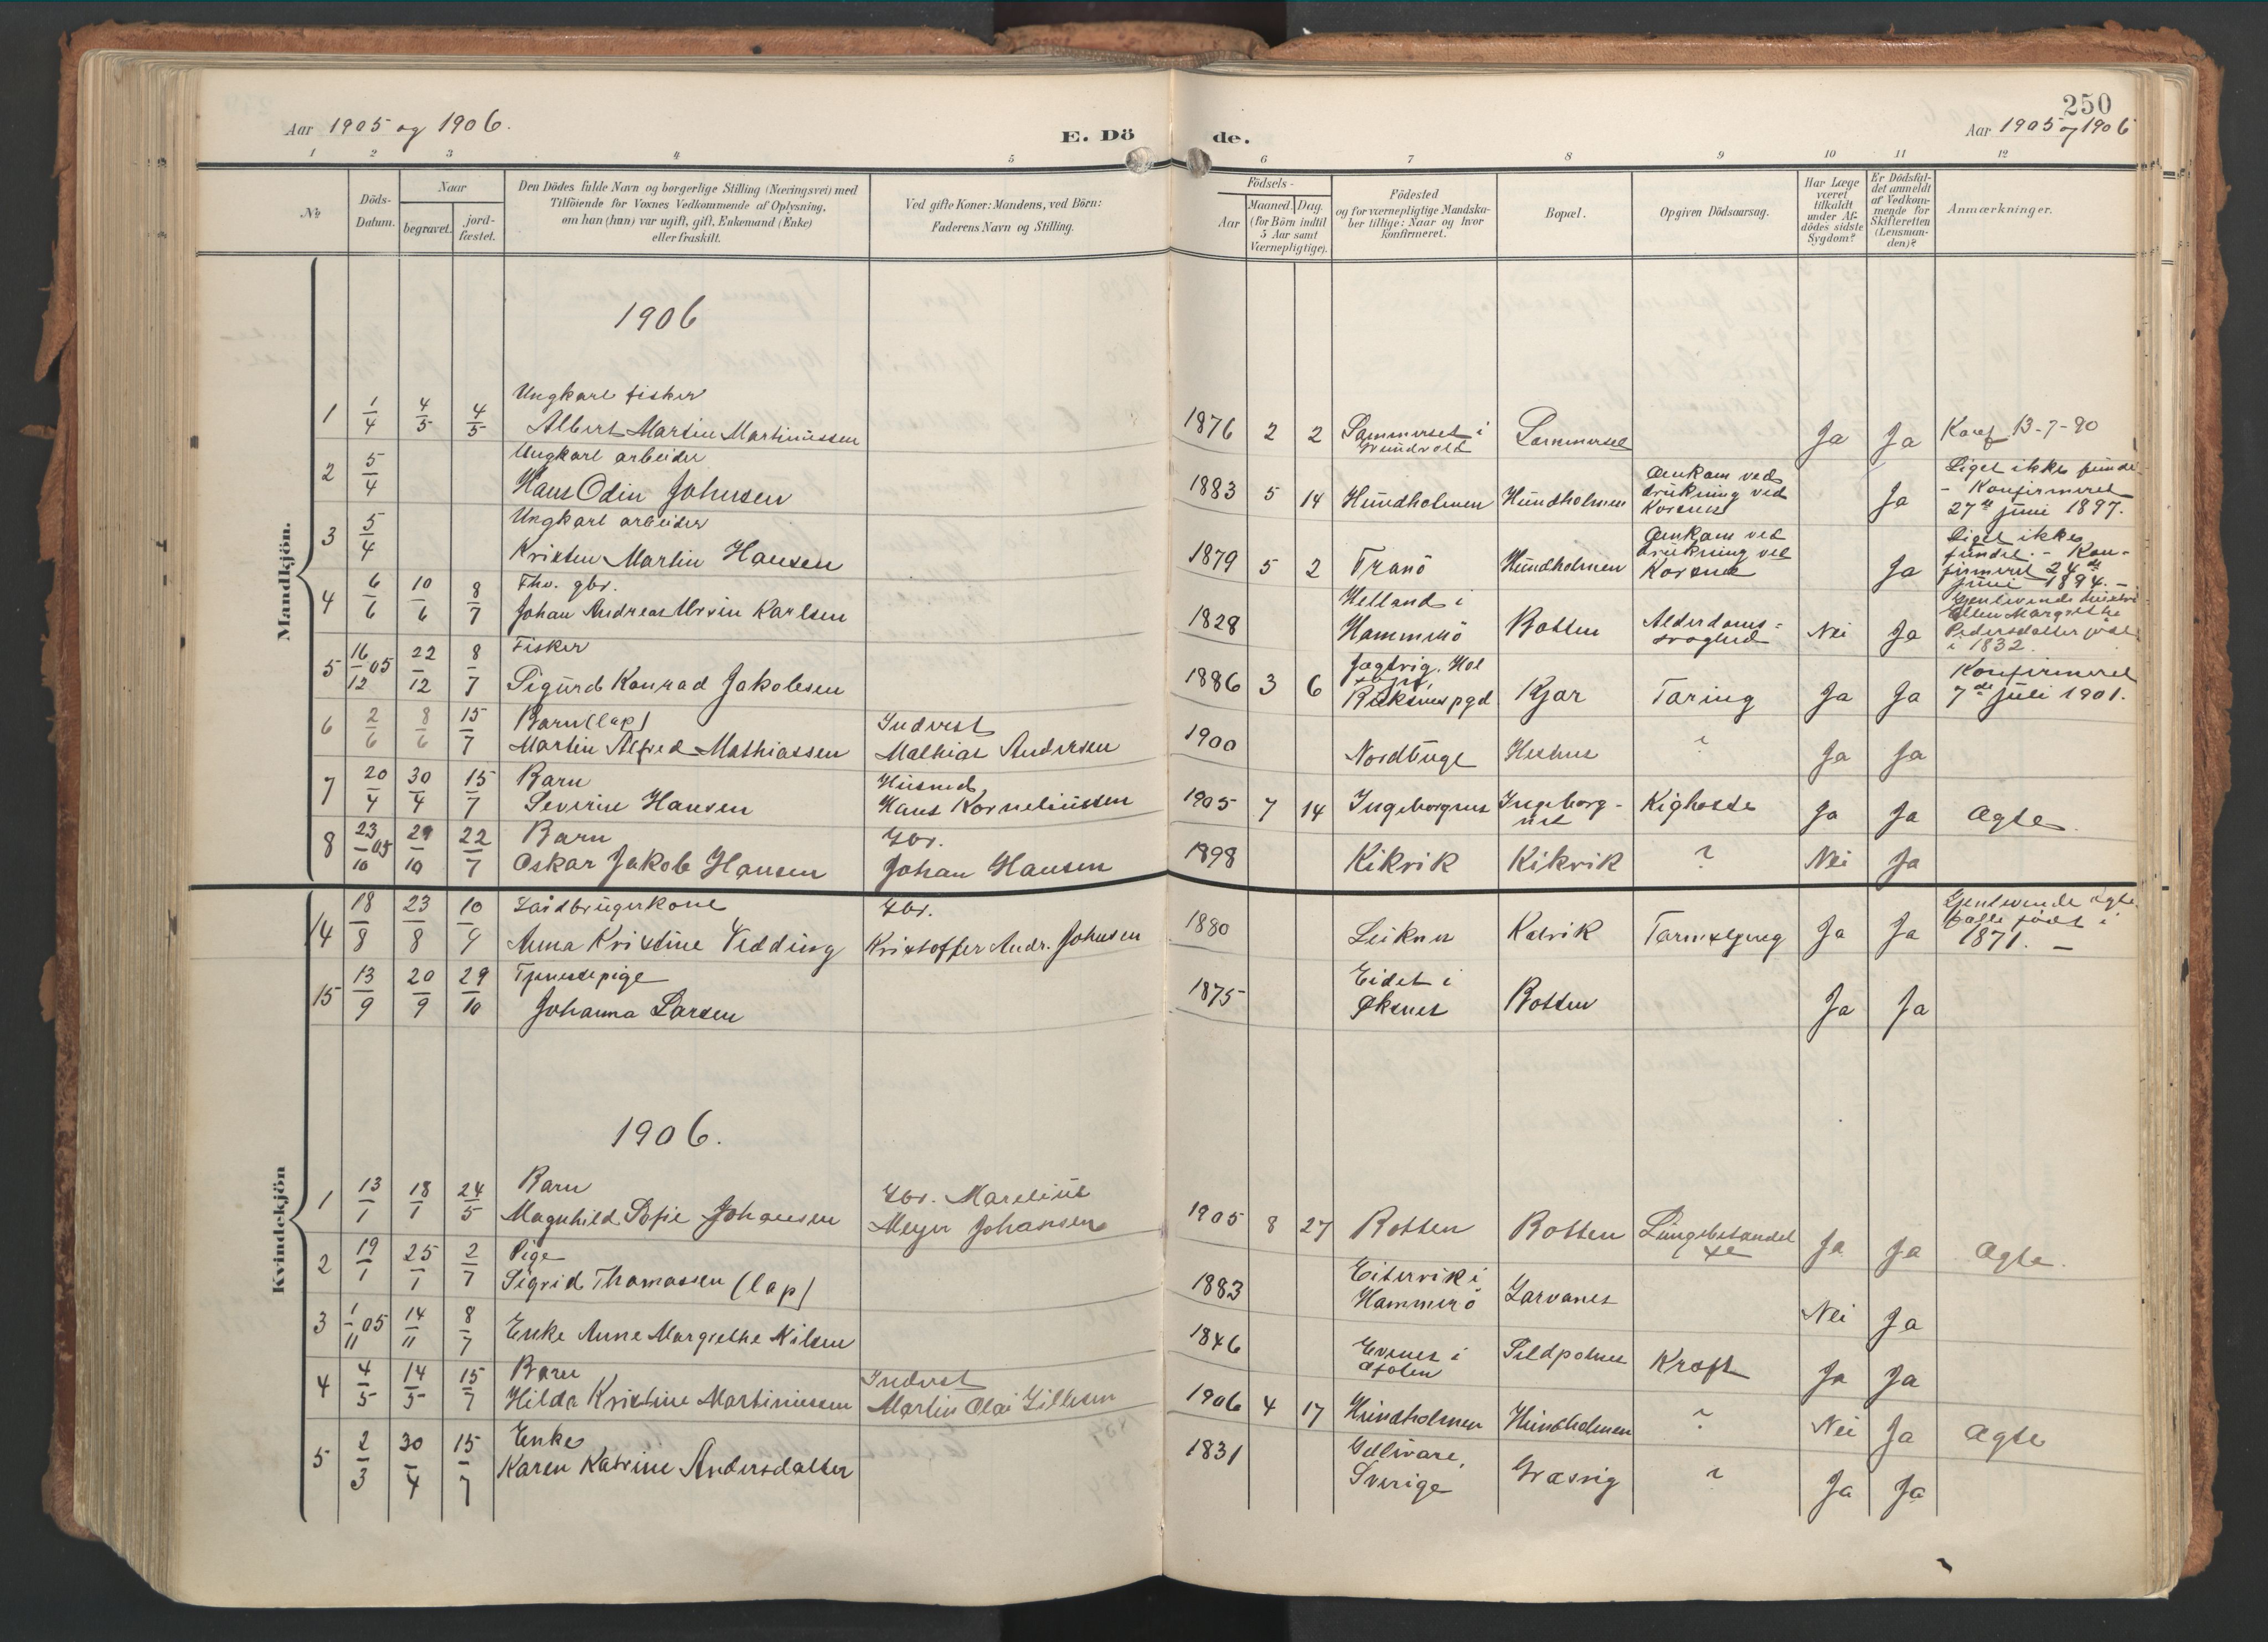 250
Aar 1905 og 1906.
E. Dö de.
Aar 1905 og 1906
1 2 3 4 5 6 7 8 9 10 11 12
№
Döds-Datum.
Naar
begravet.
jord-fæstet.
Den Dödes fulde Navn og borgerlige Stilling (Næringsvei) med
Tilföiende for Voxnes Vedkommende af Oplysning,
om han (hun) var ugift, gift, Enkemand (Enke)
eller fraskilt.
Ved gifte Koner: Mandens, ved Börn:
Faderens Navn og Stilling.
Födsels-
Aar
Maaned. Dag.
(for Börn indtil
5 Aar samt
Værnepligtige).
Födested
og for værnepligtige Mandska-
ber tillige: Naar og hvor
konfirmeret.
Bopæl.
Opgiven Dödsaarsag.
Har Læge
været
tilkaldt
under Af-
dödes sidste
Sygdom?
Er Dödsfal-
det anmeldt
af Vedkom-
mende for
Skifteretten
(Lensman-
den)?
Anmærkninger.
Mandkjön.
1906
Ungkarl fisker
1 1/4 4/5 4/5 Albert Martin Martinussen 1876 2 2 Sommerset i Sommerset Ja Ja Konf 13-7-90
Ungkarl arbeider
2 5/4 Hans Odin Johnsen 1883 5 14 Hundholmen Hundholmen Omkom ved drukning ved Korsnes Ja Liget ikke funde
- Konfirmeret
27de juni 1897.
Ungkarl arbeider
3 5/4 Kristen Martin Hansen 1879 5 2 Tranö Hundholmen Omkom ved drukning ved Korsnes Ja Liget ikke
fundet. - Kon-
firmeret 24de
juni 1894. -
Fhv. gbr.
4 6/6 10/6 8/7 Johan Andreas Karlsen 1828 Helland i Hammerö Botten Alderdoms-svaghed Nei Ja Gjenlevende
Ellen Margrethe
Pedersdatter född
i 1832.
Fisker
5 16/12 05 22/12 8/7 Sigurd Konrad Jakobsen 1886 3 6 Hol sogn, Kjær Tæring Ja Ja Konfirmeret
7de juli 1901.
Barn (lap) Indverst
6 2/6 8/6 15/7 Martin Alfred Mathiassen Mathias Andersen 1900 Nordbuge ? Ja Ja
Barn Husmd.
7 20/4 30/4 15/7 Severine Hansen Hans Korneliussen 1905 7 14 Ingeborgnes Ingeborg-nes Kighoste Ja Ja Ægte.
Barn Gbr.
8 23/10 05 29/10 22/7 Oskar Jakob Hansen Johan Hansen 1898 Kikvik Kikvik ? Nei Ja
Kvindekjön
Gaardbrugerkone Gbr.
14 18/8 23/8 10/9 Anna Kristine Vedding Kristoffer Andr. Johnsen 1880 Leiknes Kalvik Tarmslyng Ja Ja Gjenlevende ægte-
fælle född i
1871. -
Tjenestepige
15 13/9 20/9 29/10 Johanna Larsen 1875 Eidet i Øksnes Botten Ja Ja
1906.
Barn Gbr. Marelius
1 13/1 18/1 24/5 Magnhild Sofie Johansen Meyer Johansen 1905 8 27 Botten Botten Lungebetændel se Ja Ja Ægte.
Pige
2 19/1 25/1 2/7 Sigrid Thomassen (lap) 1883 Eitervik i Hammerö Garvanes Nei Ja
3 1/11 05 14/11 8/7 Enke Anne Margrethe Nilsen 1846 Evenes i Ofoten Sildpolnes Kræft Ja Ja
Barn Indverst
4 4/5 14/5 15/7 Hilda Kristine Martinussen Martin Olai Gillesen 1906 4 17 Hundholmen Hundholmen ? Nei Ja Ægte
Enke
5 2/3 30/4 15/7 Karen Katrine Andersdatter 1831 Gellivare, Sverige Græsvig ? Ja Ja